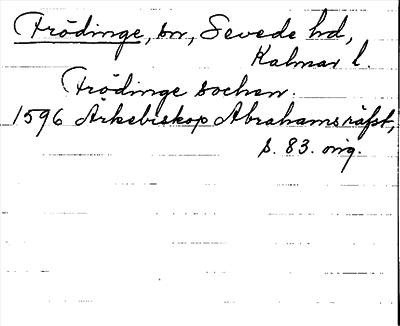 Frödinge, sn, Sevede hd,
Kalmar l.
Frödinge sochen.
1596 Ärkebiskop Abrahams räfst,
s. 83. orig.